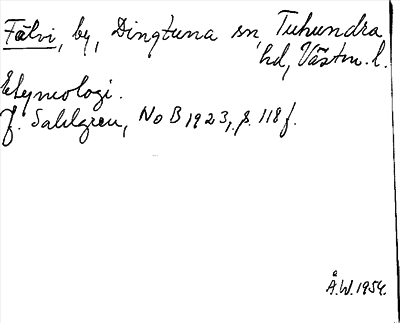 Fälvi, by, Dingtuna sn, Tuhundra
hd, Västm. l.
Etymologi.
J. Sahlgren, NoB 1923, s. 118 f.
Å.W. 1954.